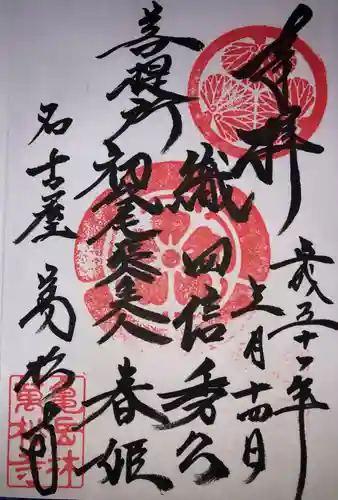 奉拝
平成三十一年
月十四日
織田信秀公
初尾夫人 春姫
菩提所
名古屋 萬松寺
亀岳林
萬松寺